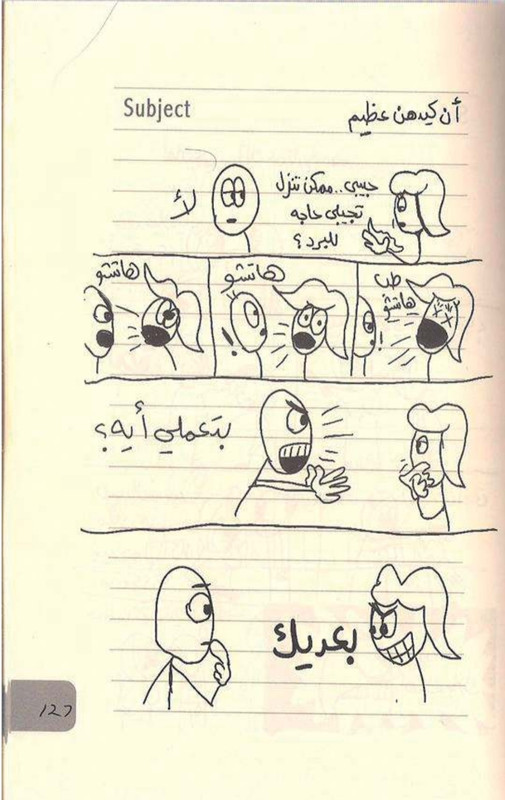 Subject
أن كيدهن عظيم
حبيبي.. ممكن تنزل
تجيلي حاجه
للبرد؟
لأ
طب
هاتشو
هاتشو
هاتشو
بتعملي أيه؟
بعديك
127